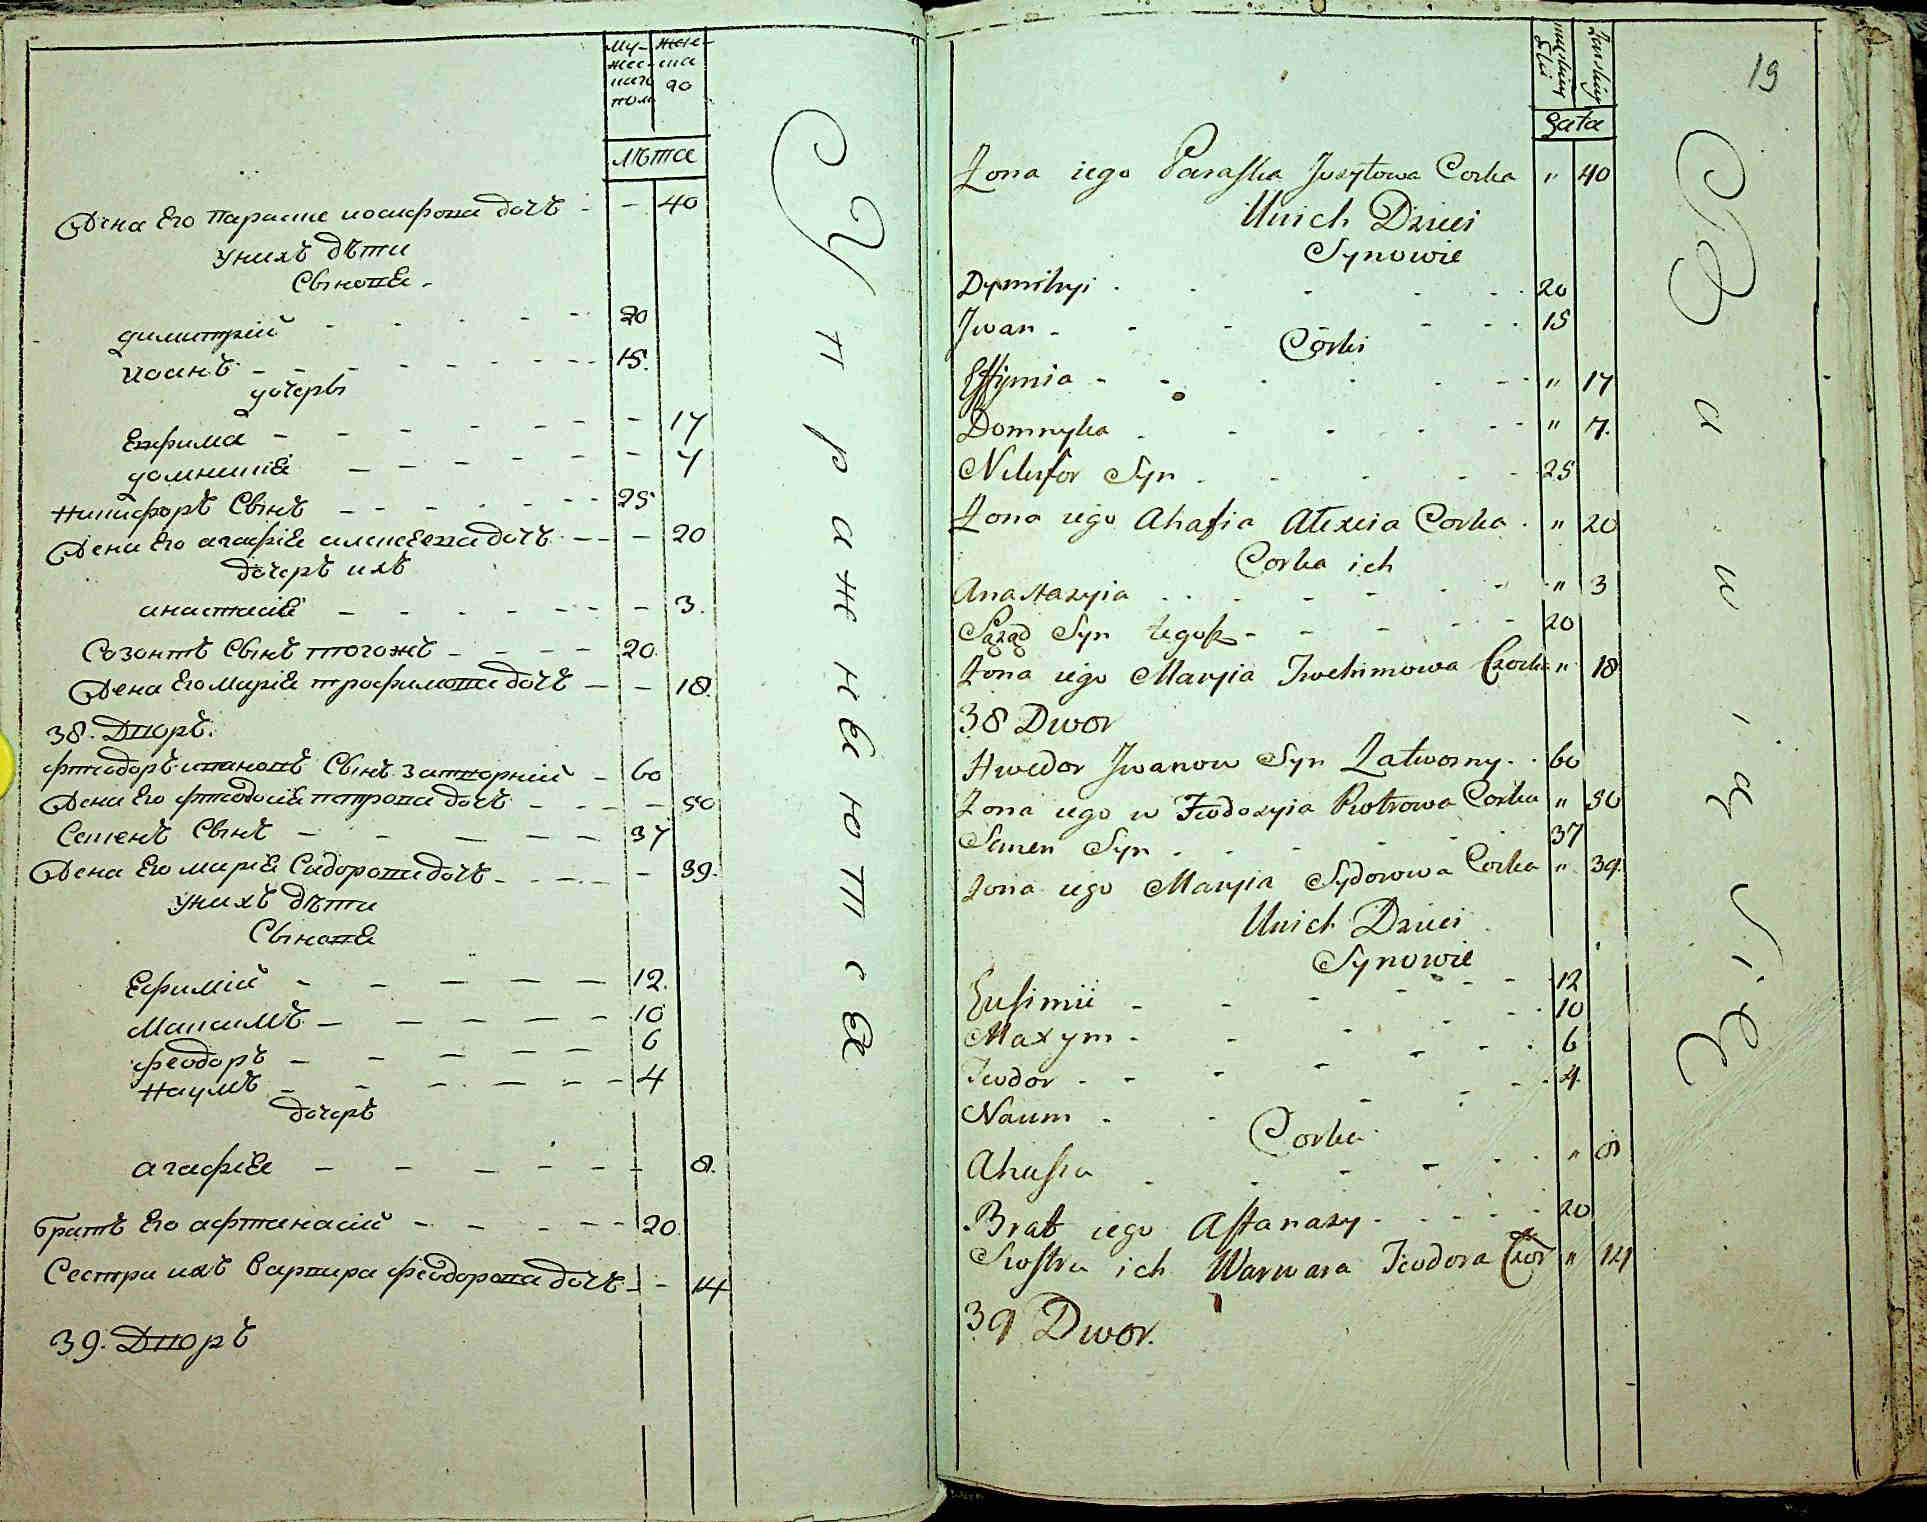 Му-
жес-
каго
полу
жен-
ска
го
лѣта
Жена Его параске иосифова дочъ - - 40
Унихъ дѣти
Сынове
димитрій 20
иоанъ 15.
дочеры
Евфима 17
домникіѣ 7
Никифоръ Сынъ 25
Жена Его агафіѣ алексеева дочъ 20
дочеръ ихъ
анастасіѣ 3.
Созонтъ Сынъ тогожъ 20.
Жена Его маріѣ трофимова дочъ 18.
38. Дворъ.
Фтеодоръ ивановъ Сынъ затворній - 60
Жена Его фтеодосіѣ петрова дочъ 50
Семенъ Сынъ 37
Жена Его маріѣ Сидорова дочъ 39.
Унихъ дѣти
Сынове
Ефимій 12.
Максимъ 10
феодоръ 6
Наумъ 4
дочеръ
агафіѣ 8.
братъ Его афтанасій 20
Сестра ихъ варвара феодорова дочъ 14
39. Дворъ
Упражнѣются
19
męskiey płci
żenskiey
Łata
Żona iego Paraska Juzyfowa Corka " 40
Unich Dzieci
Synowie
Dymitryi 20
Jwan 15
Corki
Effymia " 17
Domnyka " 7.
Nikifor Syn 25
Żona iego Ahafia Alexeia Corka " 20
Corka ich
Anastazyia " 3
Syn tegoż 20
Żona iego Maryia Corka " 18
38 Dwor
Hwedor Jwanow Syn Zatworny 60
Żona iego Piotrowa Corka " 50
Semen Syn 37
Żona iego Maryia Sydorowa Corka " 39.
Unich Dzieci
Synowie
Eufimii 12
Maxym 10
Teodor 6
Naum 4.
Corka
Ahafia " 8
Brat iego Aftanazy 20
Siostra ich Warwara Teodora Cor " 14
39 Dwor.